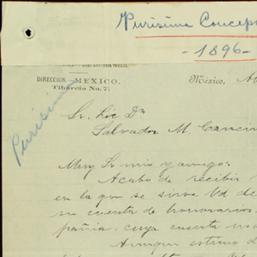 Purisima Concep
-1896-
DIRECCION MEXICO.
Tiburcio No. 7.
México, A
Purisim
Sr. Lic Dn
Salvador M. Cancin
Muy Sr mio y amigo:
Acabo de recibir
en la que se sirve Vd de
su cuenta de honorarios
pañia, cuya cuenta
Aunque estimo d